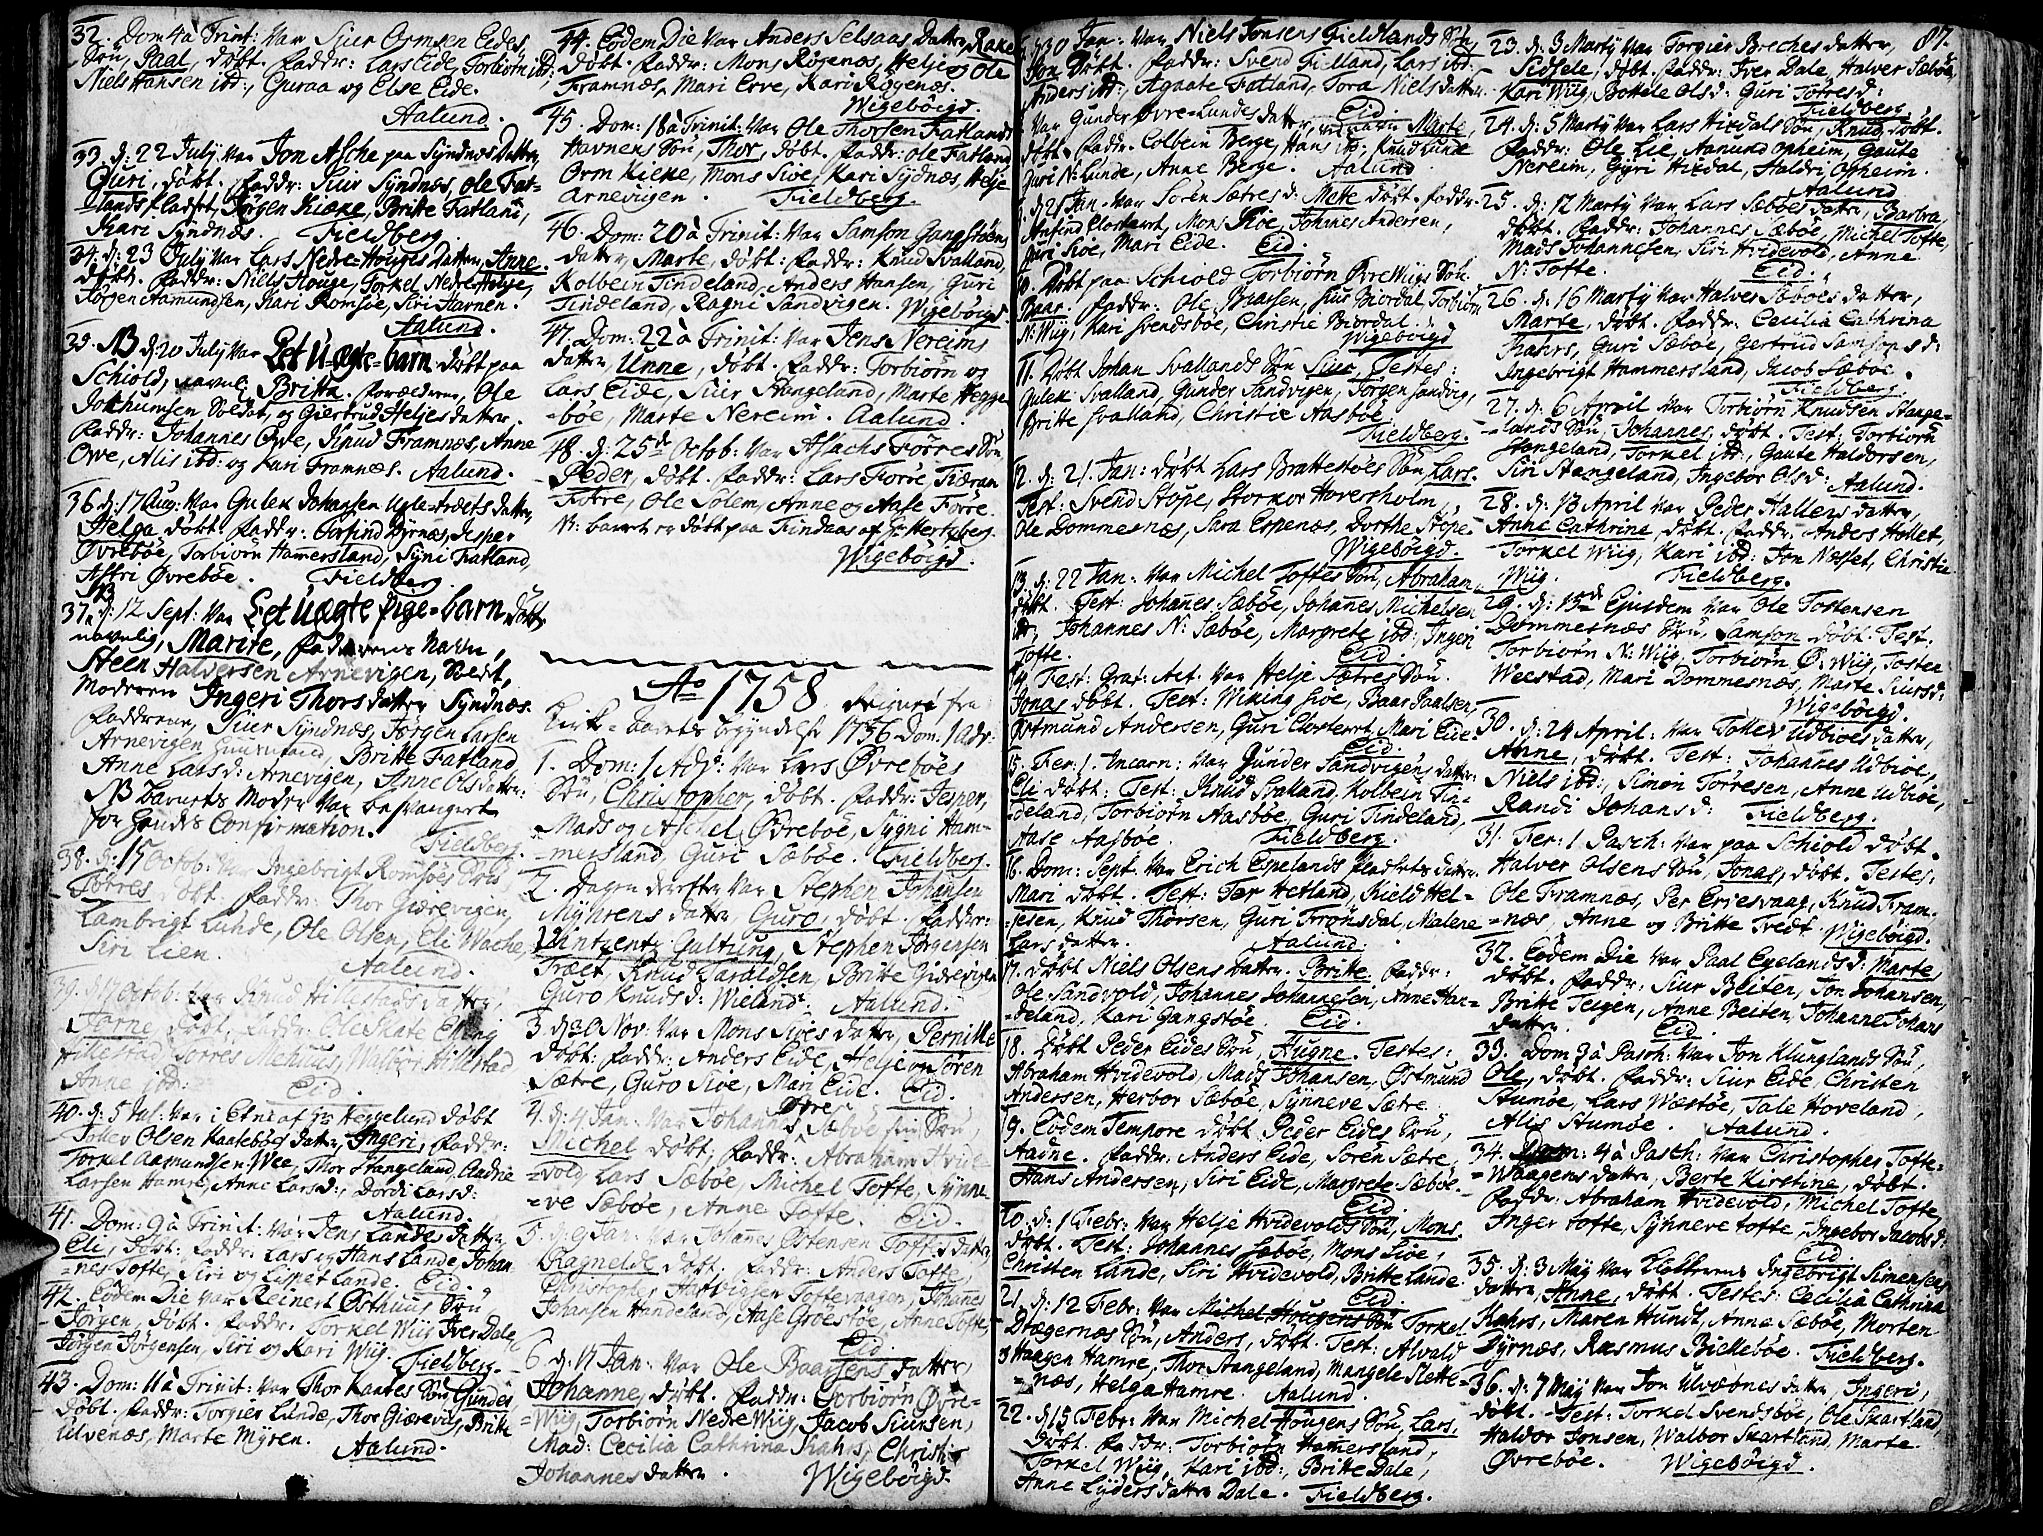 32. Dom 4 à Trinit: Var Siur Ormsen Eides
Søn, Paal, døbt. Faddr: Lars Eide, Torbiørn ibd:
Niels Hansen ibd:, Guraa og Else Eide.
Aalund.
33. d: 22 July Var Jon Asche paa Syndnes Datter
Guri, døbt. Faddr: Siur Syndnæs, Ole Fat-
lands Pladset, Jørgen Kiæke, Britte Fatland,
Kari Syndnæs. Fieldberg.
34. d: 23 July Var Lars Nedre-Houges Datter, Anne
døbt. Faddr: Niels Houge, Torkel Nedre
Jørgen Aamundsen, Kari Romsøe, Siri Havnen.
Aalund.
35. NB d: 20 July Var Eet Uægte-barn døbt paa
Schiold, navnl: Britta. Forældrene, Ole
Jochumsen Soldat, og Giertrud Heljesdatter.
Faddr: Johannes Øvre, Knud Framnæs, Anne
Owe, Alis ibd: og Kari Framnæs. Aalund.
36. d: 17 Aug: Var Gulek Johansen datter,
Helga døbt. Faddr: Torfind Dyrnæs, Jesper
Øvrebøe, Torbiørn Hammersland, Syni Fatland,
Astri Øvrebøe. Fieldberg.
NB
37. d: 12 Sept: Var Eet Uægte Pige-barn døbt
navnlig, Marite, Faderens Navn,
Steen Halversen Arnevigen, Soldt,
Moderen Ingeri Thorsdatter Syndnæs.
Faddrene, Siur Syndnæs, Jørgen Larsen
Arnevigen, Britte Fatland
Anne Larsd: Arnevigen, Anne Olsdatter:
NB barnets Moder Var besvangeret
før hendes Confirmation.
Fieldberg.
38. d: 15 Octob: Var Ingebrigt Romsøes Søn
Torres døbt. Faddr: Thor Giærevigen,
Lambrigt Lunde, Ole Olsen, Eli Wache,
Siri Lien.
Aalund.
39. d: Octob: Var Knud Hillestads datter
døbt, Faddr: Ole Skate
Hillestad, Torres Mehuus, Walbor Hillestad
Anne ibd:
Eid.
40. d: 5 Jul: Var i Etne af Hr Heggelund døbt
Tollev Olsen Kaatebøes datter, Ingeri, Faddr:
Torkel Aamundsen Wee, Thor Stangeland, Aadne
Larsen Hamre, Anne Larsd:, Dordi Larsd:
Aalund.
41. Dom: 9 à Trinit: Var Jens Landes datter
Eli, døbt: Faddr: Lars og Hans Lande, Johan-
nes Tofte, Siri og Lisbet Lande. Eid.
42. Eodem Die Var Reinert Østhuus Søn
Jørgen, døbt. Faddr: Torkel Wiig Iver Dale,
Jørgen Jørgensen, Siri og Kari Wiig. Fieldberg.
43. Dom: 11 à Trinit: Var Thor Kaates Søn Gunder
døbt. Faddr: Torgier Lunde, Thor Giærevig, Britte
Ulvenæs, Marte Myren.
Aalund.
44. Eodem Die Var Anders Selsaas Datter, Rakel
døbt. Faddr: Mons Røgenæs, Helje og Ole
Framnæs, Mari Erve, Kari Røgenæs.
Wigebøigd.
45. Dom: 18 à Trinit: Var Ole Thorsen Fatlands
Havnens Søn, Thor, døbt. Faddr: Ole Fatland
Orm Kieke, Mons Sioe, Kari Sydnæs, Helje
Arnevigen. Fieldberg.
46. Dom: 20 à Trinit: Var Samson Gangstøen
datter, Marte, døbt: Faddr: Knud Svalland,
Kolbein Tindeland, Anders Hansen, Guri
Tindeland, Ragni Sandvigen. Wigebøigd.
47. Dom: 22 à Trinit: Var Jens Nereims
datter, Unne, døbt. Faddr: Torbiørn og
Lars Eide, Siur Stangeland, Marte Hegge-
-bøe, Marte Nereim. Aalund.
48. d: 25de Octob: Var Aslachs Førres Søn
Peder, døbt. Faddr: Lars Førre, Tiæran
Førre, Ole Solem, Anne og Aase Førre.
N: barnet er døbt paa Tindaas af Hr Hertzberg.
Wigebøigd.
Ao 1758
Kirke-Aarets Begyndelse 1756 Dom: 1 Adv:
1. Dom: 1 Adv: Var Lars Øvrebøes
Søn, Christopher, døbt. Faddr: Jesper,
Mads og Aschel Øvrebøe, Sygni Ham-
mersland, Guri Sæbøe. Fieldberg.
2. Dagen derefter Var Stephen Johansen
Myhrens datter, Guro, døbt. Faddr:
Vintzentz Galtung, Stephen Jørgensen
Træet, Knud Haraldsen, Britte Giærevigen
Guro Knudsd: Wieland. Aalund.
3. d: Nov: Var Mons Sioes datter, Pernille
døbt: Faddr: Anders Eide, Helje og Søren
Sætre, Guro Sioe, Mari Eide. Eid.
4. d: 4 Jan: Var Johannes Øvre Sæbøe sin Søn,
Michel døbt, Faddr: Abraham Hvide-
vold, Lars Sæbøe, Michel Tofte, Synne-
ve Sæbøe, Anne Tofte. Eid.
5. d: 9 Jan: Var Johannes Østensen Toftes datter
Ragnelde døbt. Faddr: Anders Tofte,
Christopher Toftevaagen, Johannes
Johansen Handeland, Aase Groestøe, Anne Tofte,
Eid.
6. d: 17 Jan: Var Ole Baarsens datter
Johanne, døbt. Faddr: Torbiørn Øvre-
Wiig, Torbiørn Nedre Wiig, Jacob Siursen,
Mad: Cecilia Cathrina Kahrs, Christi
Johannesdatter.
Wigebøigd.
30 Jan: Var Niels Jonsens Fieldlands Søn
Jon døbt. Faddr: Svend Fielland, Lars ibd:
Anders ibd:, Agaate Fatland, Tora Nielsdatter.
Eid
Var Gunder Øvre-Lundes datter, ved navn Marte,
døbt. Faddr: Colbein Berge, Hans ibd: Knud Lunde
Guri N: Lunde, Anne Berge. Aalund
d: 21 Jan: Var Søren Sætres d: Mette døbt. Faddr:
Anfind Clostervet, Mons Sioe, Johannes Andersen,
Guri Sioe, Mari Eide. Eid.
10. Døbt paa Schiold Torbiørn Øvre Wiigs Søn
Baar. Faddr: Ole Baarsen, Siur Biordal, Torbiørn
N: Wiig, Kari Svendsbøe, Christie Biordal.
Wigebøigd
11. Døbt Johan Svallands Søn Siur. Testes:
Gulek Svalland, Gunder Sandvigen, Jørgen Sandvig,
Britte Svalland, Christie Aasbøe.
Fieldberg.
12. d: 21 Jan: døbt Lars Brattestøes Søn, Lars.
Test: Svend Støpe, Storkor Hoversholm,
Ole Dommesnæs, Sara Espenæs, Dorthe Støpe.
Wigebøigd.
13. d: 22 Jan: Var Michel Toftes Søn, Abraham
døbt. Test: Johannes Sæbøe, Johannes Michelsen
ibd, Johannes N: Sæbøe, Margrete ibd: Ingeri
Tofte. Eid.
14. Fest: Var Helje Sætres Søn
Jonas døbt. Test: Wiking Sioe, Baar Paalsen,
Østmund Andersen, Guri Clostervet, Mari Eide.
Eid.
15. Fer: 1. Incarn: Var Gunder Sandvigens datter
Eli døbt: Test: Knud Svalland, Kolbein Tin-
deland, Torbiørn Aasbøe, Guri Tindeland,
Aase Aasbøe. Fieldberg.
16. Dom: Sept: Var Erich Espelands Pladsets datter
Mari døbt. Test: Hetland, Kield Hel-
jesen, Knud Thorsen, Guri Tronsdal, Malene
Larsdatter. Aalund.
17. Døbt Niels Olsens datter. Britte. Faddr:
Ole Sandvold, Johannes Johannesen, Anne Han-
deland, Kari Gangstøe. Eid.
18. Døbt Peder Eides Søn, Augne. Testes:
Abraham Hvidevold, Mads Johansen, Østmund
Andersen, Herbor Sæbøe, Synneve Sætre.
19. Eodem Tempore døbt Peder Eides Søn,
Aadne. Faddr: Anders Eide, Søren Sætre,
Hans Andersen, Siri Eide, Margrete Sæbøe.
Eid.
20. d: 1 Febr: Var Helje Hvidevolds Søn, Mons.
døbt. Test: Johannes Sæbøe, Mons Sioe,
Christen Lande, Siri Hvidevold, Britte Lande.
Eid.
21. d: 12 Febr: Var Michel Hougens Søn Torkel
Dragernæs Søn, Anders, døbt. Test: Alvald
Haagen Hamre, Thor Stangeland, Mangele Slette-
næs, Helga Hamre. Aalund.
22. d: 15 Febr: Var Michel Hougens Søn Lars.
døbt. Faddr: Torbiørn Hammersland,
Torkel Wiig, Kari ibd:, Britte Dale,
Anne Lydersdatter Dale. Fieldberg.
87.
23. d: 3 Marty Var Torgier Breches datter,
Sidsele, døbt. Faddr: Iver Dale, Halver Sæbøe,
Kari Wiig, Bottele Olsd: Guri Torresd:
Fieldberg.
24. d: 5 Marty Var Lars Hixdals Søn, Knud døbt.
Faddr: Ole Lie, Aamund Opheim, Gaute
Nereim, Gyri Hixdal, Haldri Opheim.
Aalund
25. d: 12 Marty Var Lars Sæbøes datter, Barbra,
døbt. Faddr: Johannes Sæbøe, Michel Tofte,
Mads Johannesen, Siri Hvidevold, Anne
N: Tofte. Eid.
26. d: 16 Marty Var Halver Sæbøes datter,
Marte, døbt. Faddr: Cecilia Cathrina
Kahrs, Guri Sæbøe, Gertrud Samsonsd:
Ingebrigt Hammersland, Jacob Sæbøe.
Fieldberg.
27. d: 6 April Var Torbiørn Knudsen Stange-
lands Søn, Johannes, døbt. Test: Torbiørn
Stangeland, Torkel ibd:, Gaute Haldorsen,
Siri Stangeland, Ingebor Olsd: Aalund.
28. d: 13 April Var Peder Hallets datter,
Anne Cathrine, døbt. Faddr: Anders Hollet,
Torkel Wiig, Kari ibd: Jon Næsset, Christie
Wiig. Fieldberg.
29. d: 15de Ejusdem Var Ole Tostensen
Dommesnæs Søn, Samson døbt. Test:
Torbiørn N: Wiig, Torbiørn Ø: Wiig, Tosten
Weestad, Mari Dommesnæs, Marte Siursd:
Wigebøigd.
30. d: 24 April: Var Tollev Udbioes datter,
Anne, døbt. Test: Johannes Udbioe,
Niels ibd:, Simon Torresen, Anne Udbioe,
Randi Johansd: Fieldberg.
31. Fer: 1 Pasch: Var paa Schiold døbt.
Halver Olsens Søn, Jonas, døbt. Testes:
Ole Framnæs, Per Eriesvaag, Knud Fram-
næs, Anne og Britte Tvedt. Wigebøigd.
32. Eodem Die Var Paal Egelands d: Marte,
døbt. Faddr: Siur Beiten, Jon Johansen,
Britte Teigen, Anne Beiten, Johanne Johans
datter. Eid
33. Dom 3 à Pasch: Var Jon Klunglands Søn,
Ole, døbt. Faddr: Siur Eide, Christen
Stumøe, Lars Westøe, Tale Hoveland,
Alis Stumøe. Aalund.
34. Dom: 4 à Pasch: Var Christopher Tofte-
Waagens datter, Berte Kirstine, døbt.
Faddr: Abraham Hvidevold, Michel Tofte,
Inger Tofte, Synneve Tofte, Ingebor Jacobsd:
Eid
35. d: 3 May Var Klokkerens Ingebrigt Simensens
datter, Anne, døbt. Testes: Cecilia Cathrina
Kahrs, Maren Hundt, Anna Sæbøe, Morten
Dyrnæs, Rasmus Birkebøe. Fieldberg.
36. d: 7 May Var Jon Ulvebnes datter, Ingeri,
døbt. Test: Torkel Svendsbøe, Ole Skartland,
Haldor Jonsen, Walbor Skartland, Marte
Øvrebøe. Wigebøigd.